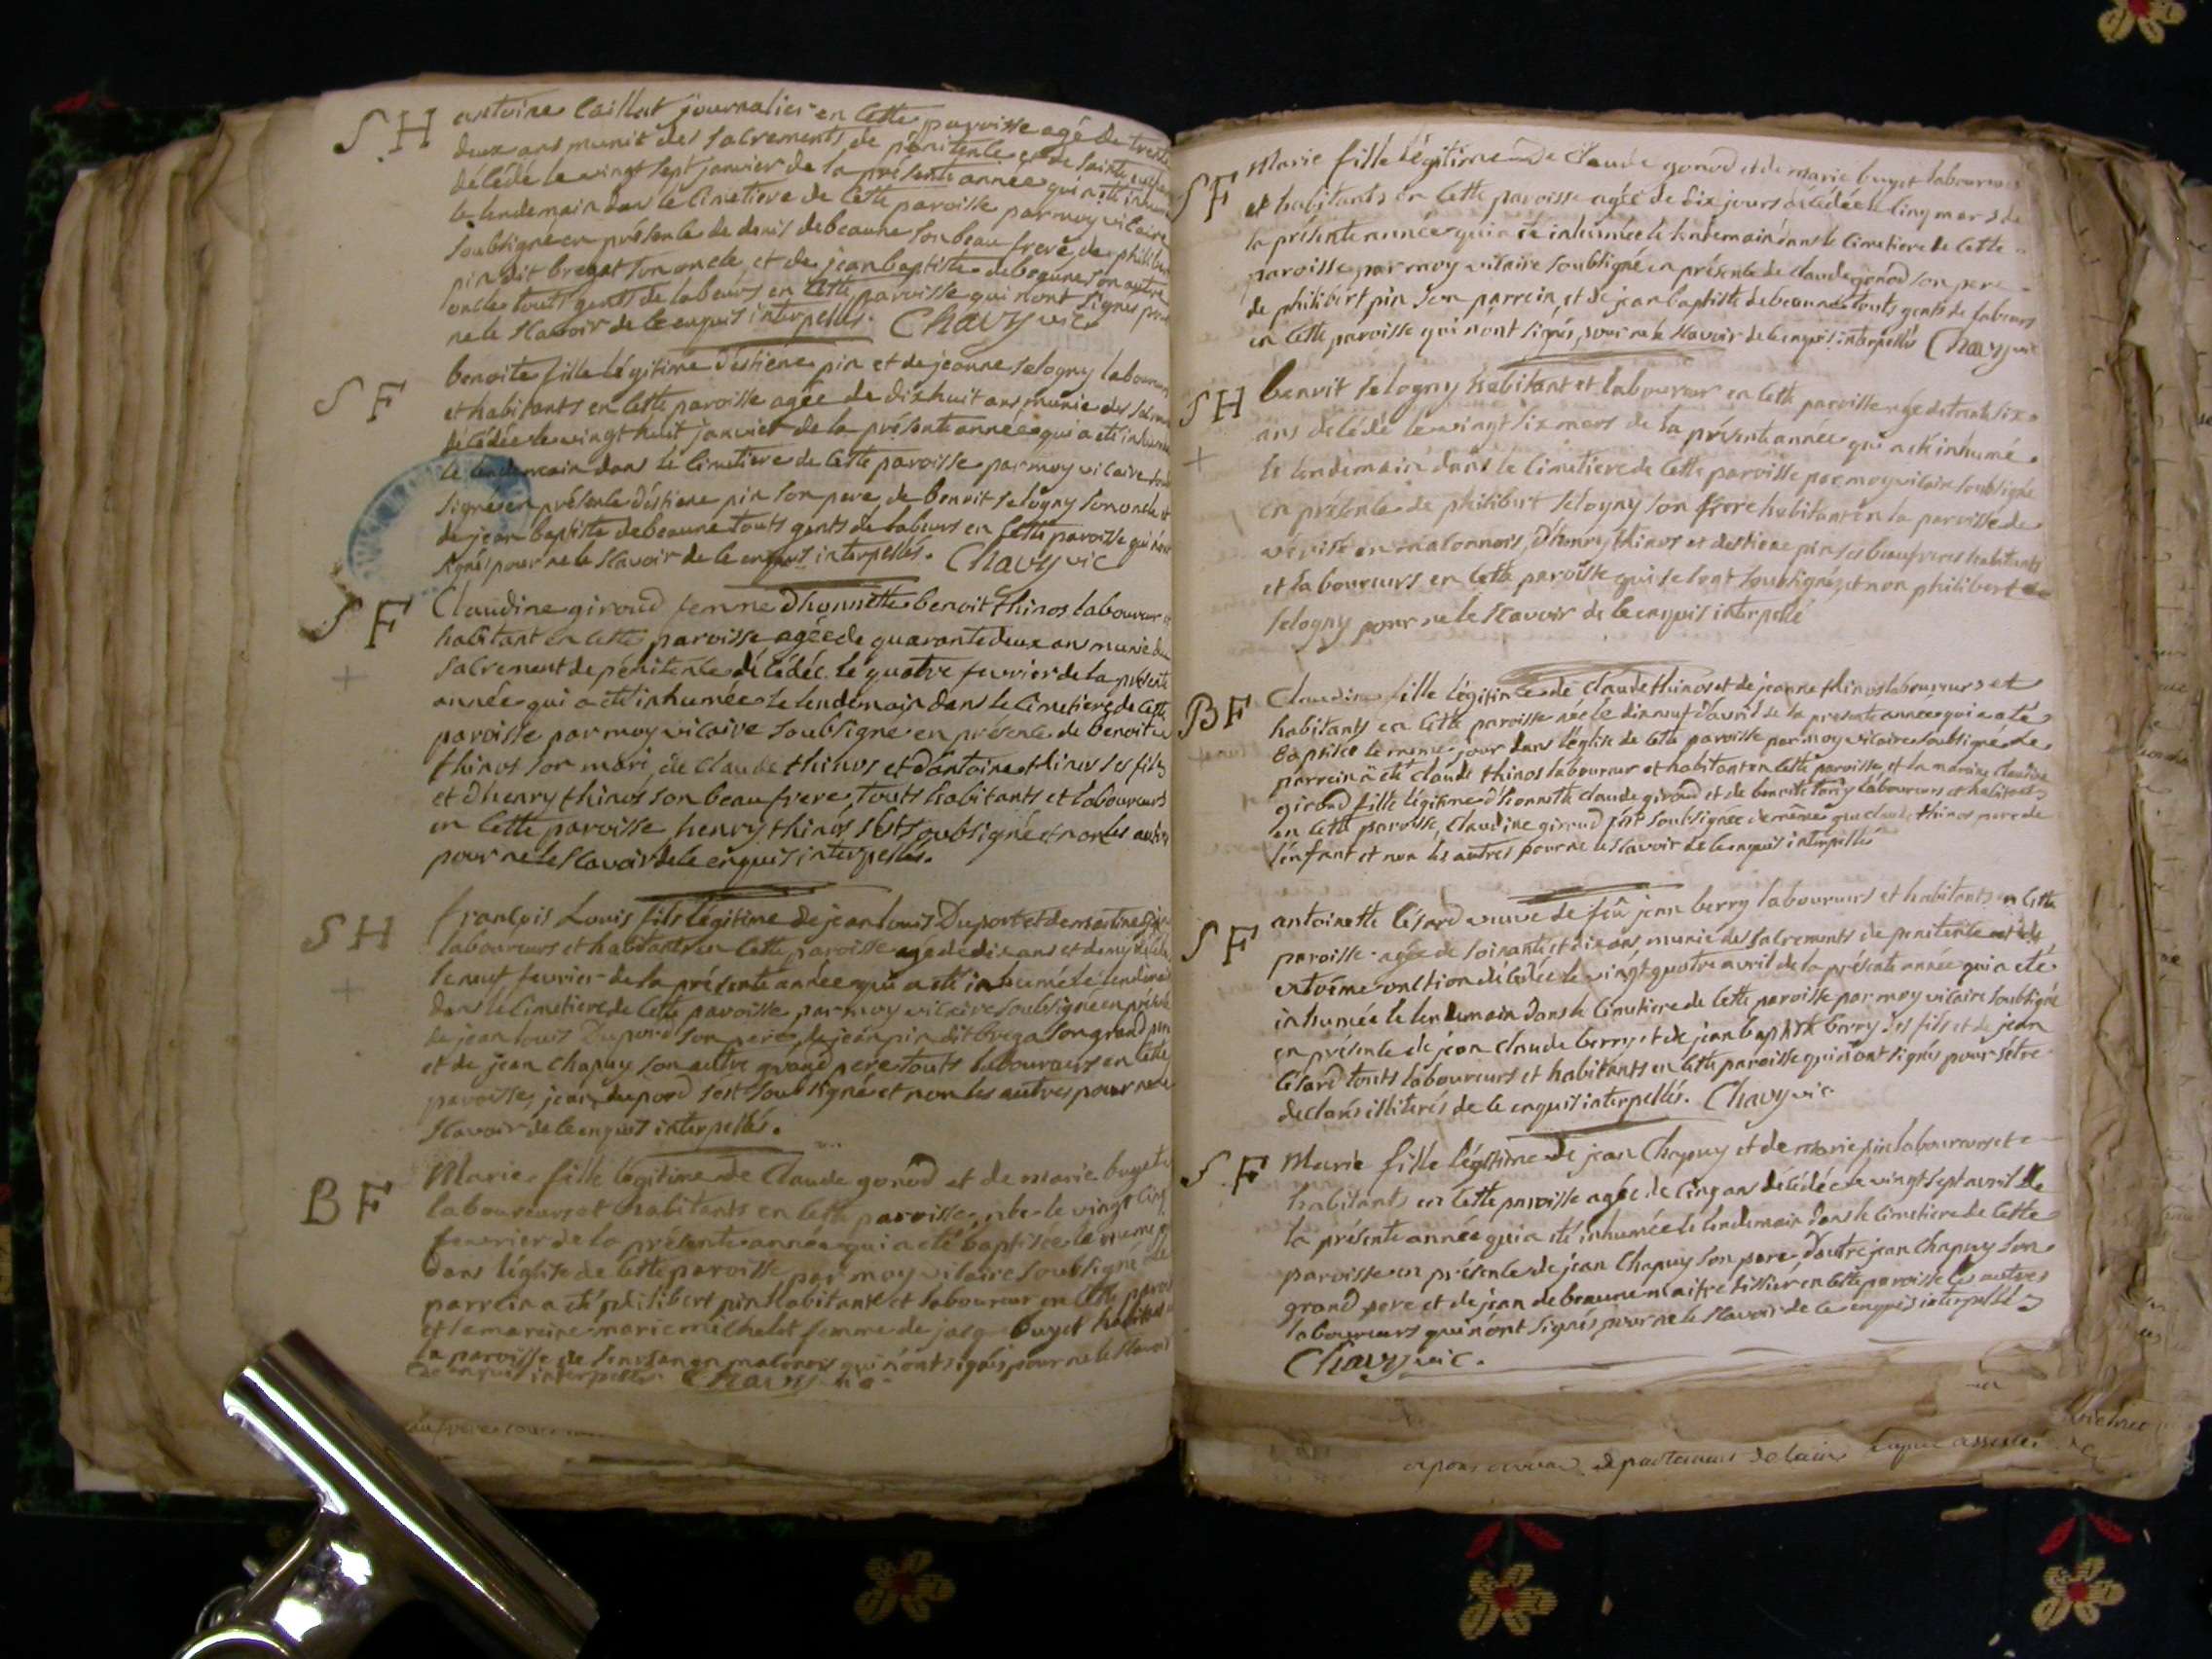 SH antoine Caillat journalier en Cette paroisse agé de trente
deux ans munit des Sacrements de pénitence et de Sainte
décédé le vingt sept janvier de la présente année qui a été inhumé
le lendemain dans le Cimetiere de Cette paroisse par moy vicaire
Soubsigné en présence de denis debeaune Son beau frere, de philibert
pin dit bregat Son oncle, et de jean baptiste debeaune Son autre
oncle touts gents de labeurs en Cette paroisse qui n'ont Signés pour
ne le Scavoir de Ce enquis interpellés. Chavy vic
SF benoite fille légitime d'estiene pin et de jeanne Selogny laboureurs
et habitants en Cette paroisse agée de dix huit ans munie des
décédée le vingt huit janvier de la présente année qui a été inhumée
le lendemain dans le Cimetiere de Cette paroisse par moy vicaire
Signé en présence d'estiene pin Son pere, de benoit Selogny Son oncle et
de jean baptiste debeaune touts gents de labeurs en Cette paroisse qui n'ont
Signés pour ne le Scavoir de Ce enquis interpellés. Chavy vic
SF Claudine giroud femme d'honnette benoit thinos laboureur et
habitant en Cette paroisse agée de quarante deux ans munie du
Sacrement de pénitence décédée le quatre fevrier de la présente
année qui a été inhumée le lendemain dans le Cimetiere de Cette
paroisse par moy vicaire Soubsigné en présence de benoit
thinos Son mari, de Claude thinos et d'antoine thinos Ses fils
et d'henry thinos Son beau frere, touts habitants et laboureurs
en Cette paroisse henry thinos S'est Soubsigné et non les autres
pour ne le Scavoir de Ce enquis interpellés.
SH françois Louis fils légitime de jean louis Duport et de
laboureurs et habitants en Cette paroisse agé de dix ans et demy
le neuf fevrier de la présente année qui a été inhumé le lendemain
dans le Cimetiere de Cette paroisse par moy vicaire Soubsigné en présence
de jean louis Dupord Son pere, de jean pin dit brega Son grand pere
et de jean Chapuy Son autre grand pere touts laboureurs en Cette
paroisse, jean dupord S'est Soubsigné et non les autres pour ne le
Scavoir de Ce enquis interpellés.
BF Marie fille légitime de Claude gonod et de marie buget
laboureurs et habitants en Cette paroisse née le vingt Cinq
fevrier de la présente année qui a été baptisée le meme
dans l'église de Cette paroisse par moy vicaire Soubsigné le
parrein a été philibert pin habitant et laboureur en Cette
et la mareine marie michelet femme de jacq buget
la paroisse de en qui n'ont signés pour ne le Scavoir
de Ce enquis interpellés. Chavy vic
SF Marie fille légitime de Claude gonod et de marie buget laboureurs
et habitants en Cette paroisse agée de dix jours décédée le Cinq mars de
la présente année qui a été inhumée le lendemain dans le Cimetiere de Cette
paroisse par moy vicaire Soubsigné en présence de Claude gonod Son pere
de philibert pin Son parrein, et de jean baptiste debeaune touts gents de labeurs
en Cette paroisse qui n'ont signés, pour ne le Scavoir de Ce enquis interpellés Chavy vic
SH benoit Selogny habitant et laboureur en Cette paroisse agé de trente Six
ans décédé le vingt Six mars de la présente année qui a été inhumé
le lendemain dans le Cimetiere de Cette paroisse par moy vicaire Soubsigné
en présence de philibert Selogny Son frere habitant en la paroisse de
en d'henry thinos et d'estiene pin Ses beaufreres habitants
et laboureurs en Cette paroisse qui Se Sont Soubsignés, et non philibert
Selogny pour ne le Scavoir de Ce enquis interpellé
BF Claudine fille légitime de Claude thinos et de jeanne thinos laboureurs et
habitants en Cette paroisse née le dix neuf d'avril de la présente année qui a été
Baptisée le meme jour dans l'église de Cette paroisse par moy vicaire Soubsigné. Le
parrein a été Claude thinos laboureur et habitant en Cette paroisse et la mareine Claudine
giroud fille légitime d'honnette Claude giroud et de benoite laboureurs et habitants
en Cette paroisse, Claudine giroud S'est Soubsignée de même que Claude thinos pere de
l'enfant et non les autres pour ne le Scavoir de Ce enquis interpellés
SF antoinette Césard veuve de feû jean berry laboureurs et habitants en Cette
paroisse agée de Soixante et dix ans munie des Sacrements de penitence et de
extrême onction décédée le vingt quatre avril de la présente année qui a été
inhumée le lendemain dans le Cimetiere de Cette paroisse par moy vicaire Soubsigné
en présence de jean Claude berry et de jean baptiste berry Ses fils et de jean
Césard touts laboureurs et habitants en Cette paroisse qui n'ont signés pour s'être
declarés illiterés de Ce enquis interpellés. Chavy vic
SF Marie fille légitime de jean Chapuy et de marie pin laboureurs et
habitants en Cette paroisse agée de Cinq ans décédée le vingt Sept avril de
la présente année qui a été inhumée le lendemain dans le Cimetiere de Cette
paroisse en présence de jean Chapuy Son pere, d'autre jean Chapuy Son
grand pere et de jean debeaune maitre tissier en Cette paroisse les autres
laboureurs qui n'ont Signés pour ne le Scavoir de Ce enquis interpellés
Chavy vic.